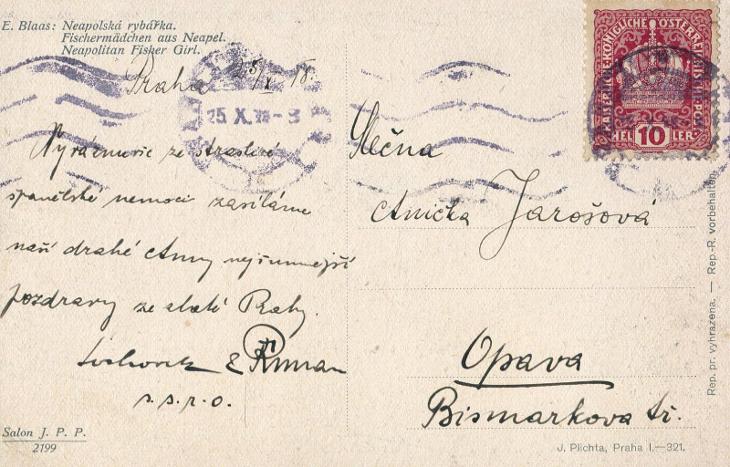 E. Blaas: Neapolská rybářka.
Fischermädchen aus Neapel.
Neapolitan Fisker Girl.
Praha 25/X 18.
25.X.18-8
ze strašlivé
španělské nemoci zasíláme
naší drahé Anny nejsrdečnější
pozdravy ze zlaté Prahy.
Říman
n.s.p.o.
Salon J. P. P.
2199
KAISERLICHE KÖNIGLICHE ÖSTERREICHISCHE POST
HELLER
10
Slečna
Anička Jarošová
Opava
Bismarkova tř.
Rep. pr. vyhrazena. — Rep.-R. vorbehalten.
J. Plichta, Praha I.—321.